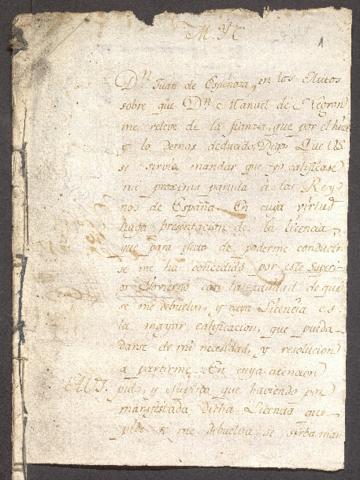 M. Y. S.
1
Dn. Juan de Espinoza, en los Autos
sobre que Dn. Manuel de Negron
me releve de la fianza, que por el hize
y lo demas deducido, Digo: Que VS.
se sirvio mandar que yo calificase
mi proxima partida a los Rey
nos de España. En cuya virtud
hago presentacion de la Licencia
que para efecto de poderme conducir
se me ha concedido por este Superi
or Govierno con la calidad de que
se me debuelva, y cuya Licencia es
la mayor calificacion, que pueda
darse de mi necesidad, y resolucion
a partirme. En cuya atencion
A V.S. pido, y suplico que haviendo por
manifestada dicha Licencia que
pido se me debuelva, se sirva man